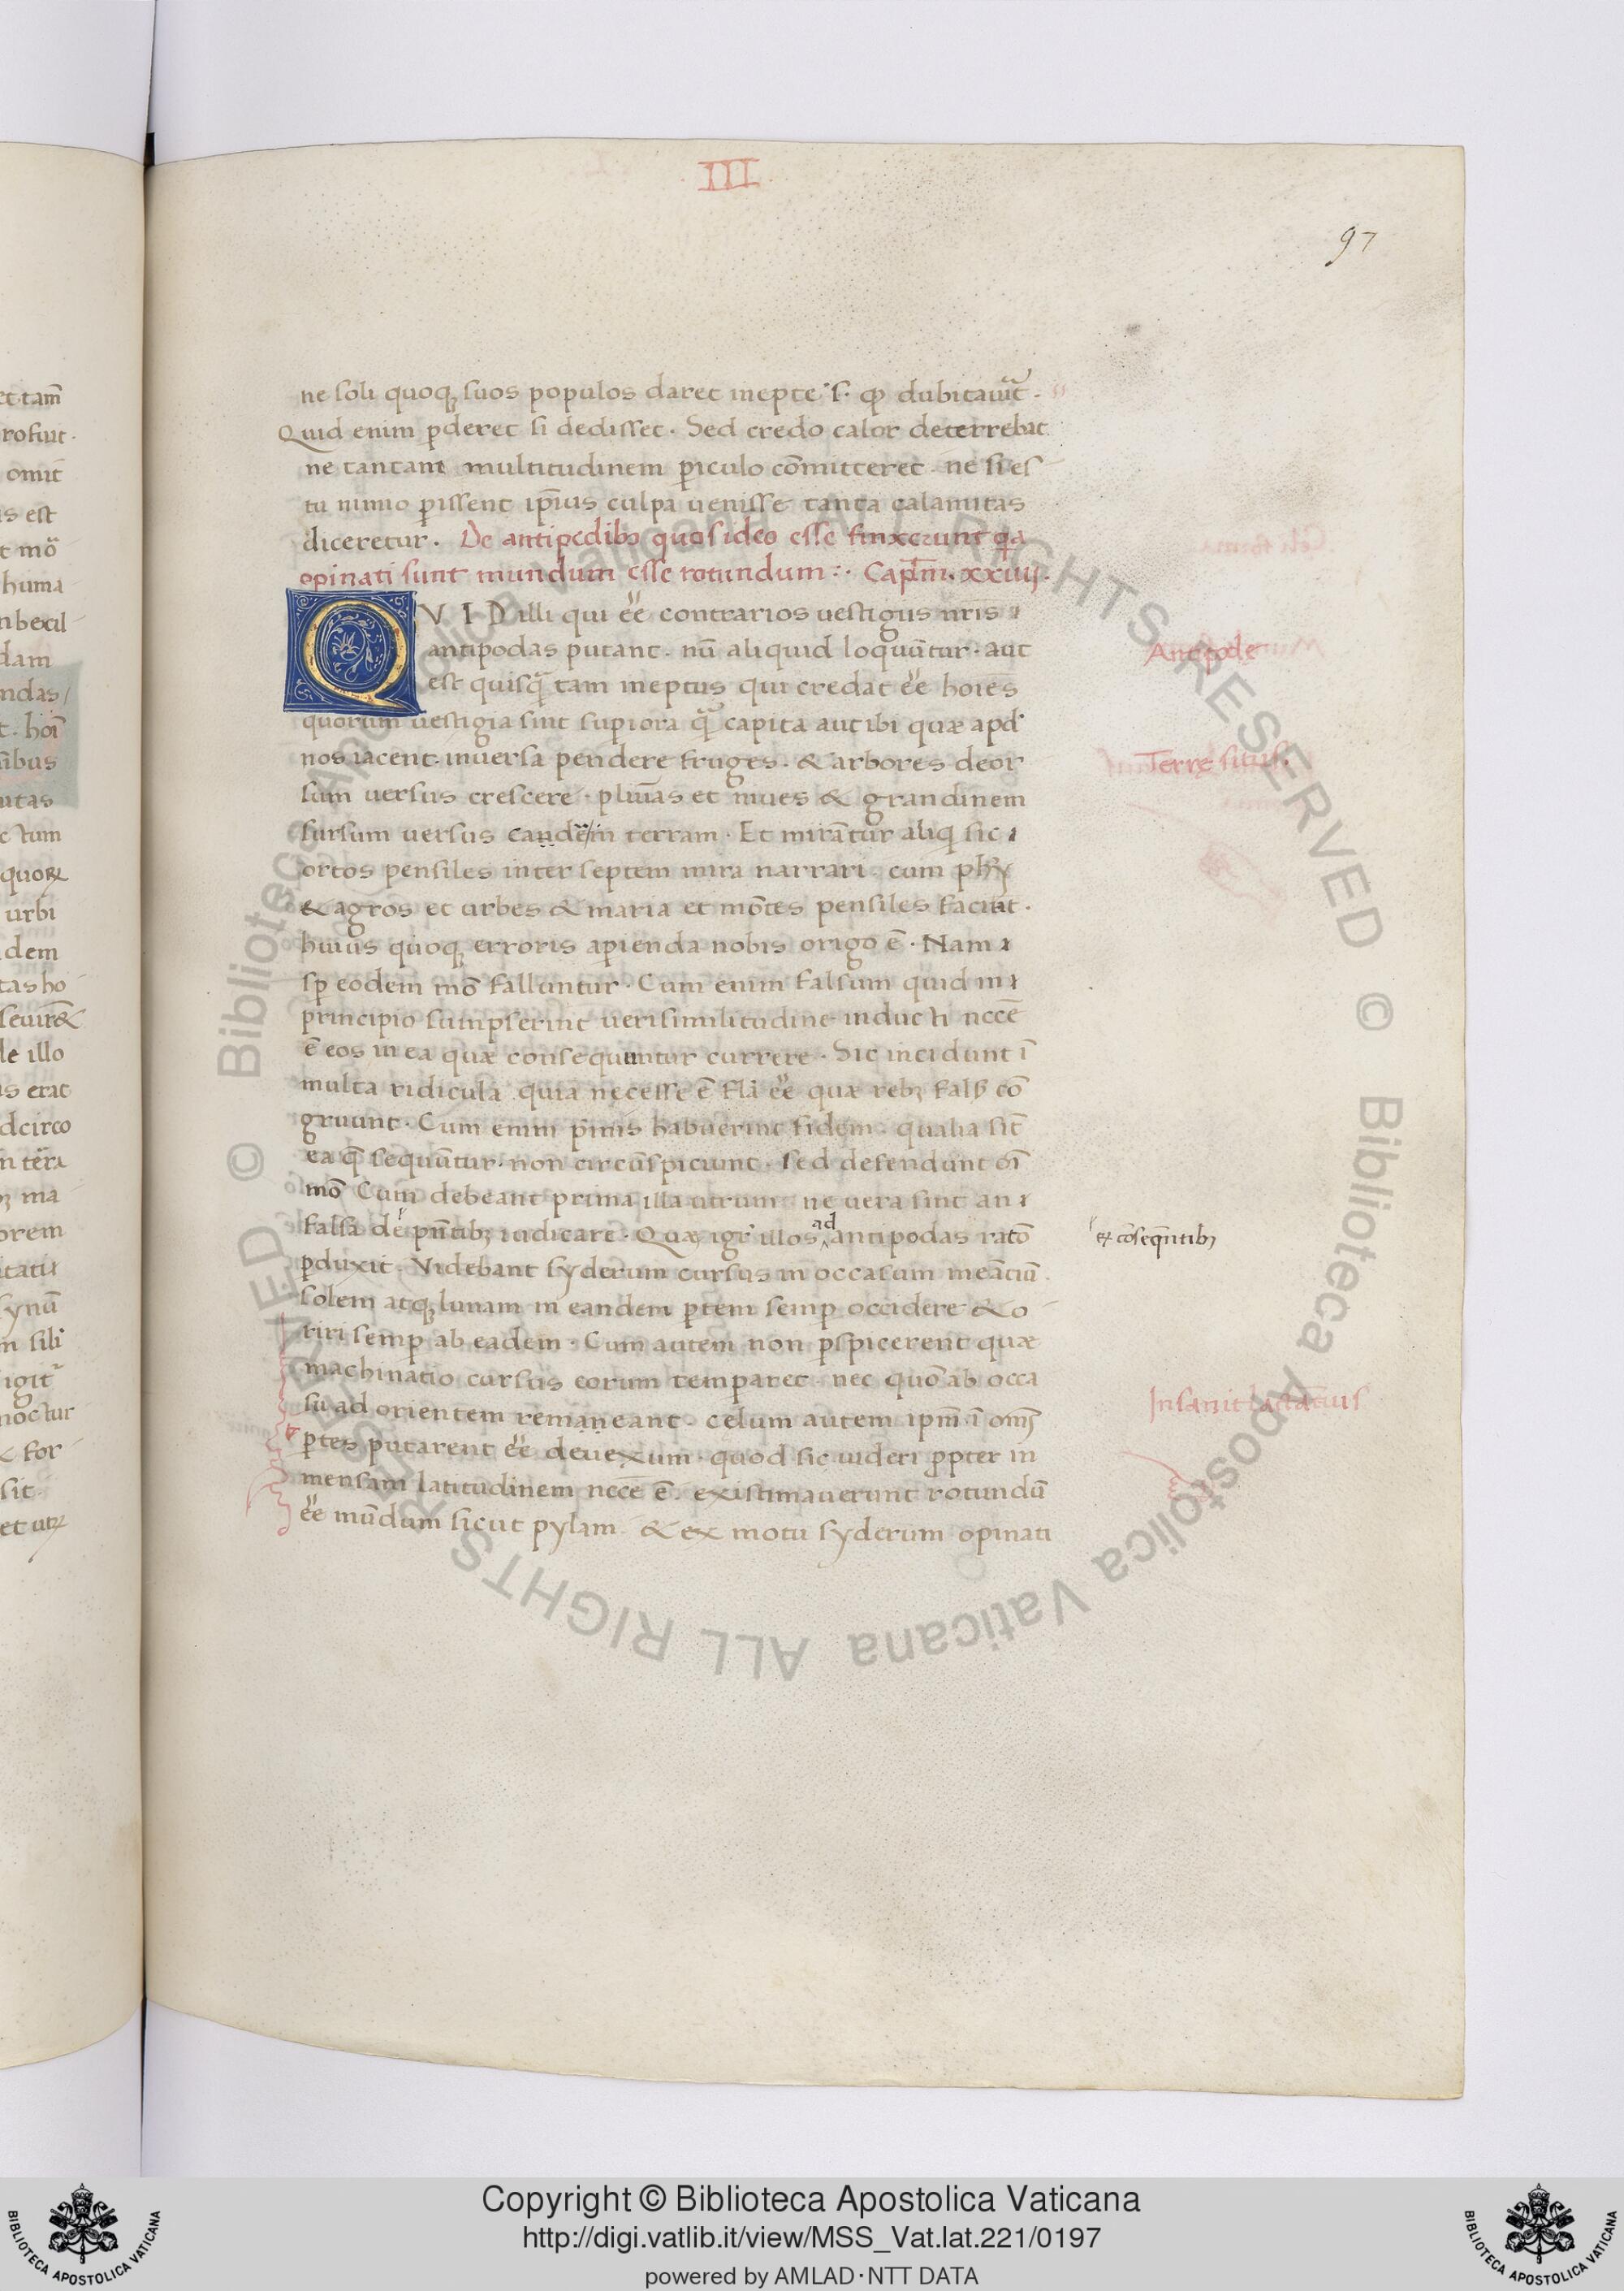 III
97
ne soli quoq; suos populos daret inepte .s. ꝙ dubitauit̄.
Quid enim ꝑderet si dedisset. Sed credo calor deterrebat
ne tantam multitudinem ꝑiculo cōmitteret. ne si es
tu nimio ꝑissent ip̄ius culpa uenisse tanta calamitas
diceretur. De antipedibꝫ quos ideo esse finxerunt q̄a
opinati sunt mundum esse rotundum: Cap̄lm. xxiiij.
QVID illi qui eē contrarios uestigiis nr̄is
antipodas putant. nū aliquid loquūtur. aut
est quisq̄ tam ineptus qui credat eē hoīes
quorum uestigia sint suꝑiora q̄ capita aut ibi quæ apd
nos iacent. inuersa pendere fruges. & arbores deor
sum uersus crescere. pluuias et niues & grandinem
sursum uersus cadē/in terram. Et mirātur aliq sic
ortos pensiles inter septem mira narrari. cum ph̄i
& agros et urbes & maria et mōtes pensiles faciūt.
huius quoq; erroris aꝑienda nobis origo ē. Nam
sꝑ eodem mō falluntur. Cum enim falsum quid in
principio sumpserint uerisimilitudine inducti nccē
ē eos in ea quæ consequuntur currere. Sic incidunt ī
multa ridicula. quia necesse ē flā eē quæ rebꝫ fals̄ cō
gruunt. Cum enim p̄mis habuerint fidem. qualia sīt
ea q̄ sequūtur. non circūspiciunt. sed defendunt oī
mō Cum debeant prima illa utrum ne uera sint an
falsa de p̄ntibꝫ iudicare. Quæ igr̄ illos ad antipodas ratō
ꝑduxit. Videbant syderum cursus in occasum meātiū.
solem atq; lunam in eandem ꝑtem semꝑ occidere & o
riri semꝑ ab eadem. Cum autem non ꝑspicerent quæ
machinatio cursus eorum temꝑaret. nec quō ab occa
su ad orientem remaneant. celum autem ipm̄ ī om̄s
ꝑtes putarent eē deuexum. quod sic uideri ꝓpter in
mensam latitudinem nccē ē. existimauerunt rotundū
eē mūdum sicut pylam. & ex motu syderum opinati
Antipode
Terrę situs.
ex cōseq̄ntibꝫ
Insanit lactātius
Copyright © Biblioteca Apostolica Vaticana
http://digi.vatlib.it/view/MSS_Vat.lat.221/0197
powered by AMLAD·NTT DATA
BIBLIOTECA APOSTOLICA VATICANA
BIBLIOTECA APOSTOLICA VATICANA
© Biblioteca Apostolica Vaticana ALL RIGHTS RESERVED © Biblioteca Apostolica Vaticana ALL RIGHTS RESERVED